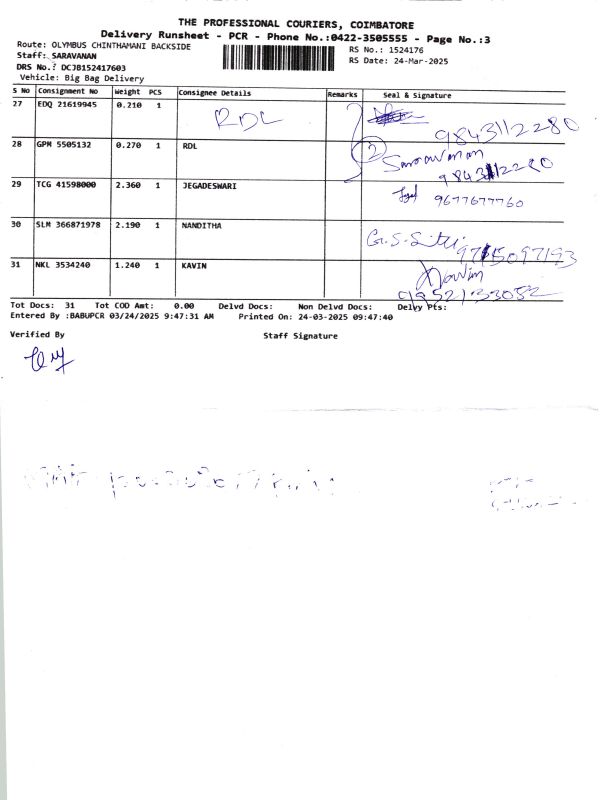 THE PROFESSIONAL COURIERS, COIMBATORE
Delivery Runsheet - PCR - Phone No.:0422-3505555 - Page No.:3
Route: OLYMBUS CHINTHAMANI BACKSIDE
RS No.: 1524176
Staff: SARAVANAN
RS Date: 24-Mar-2025
DRS No.: DCJB152417603
Vehicle: Big Bag Delivery
S No Consignment No Weight PCS Consignee Details Remarks Seal & Signature
27 EDQ 21619945 0.210 1 RDL
9843112280
28 GPM 5505132 0.270 1 RDL 2 Saravanan
9843112280
29 TCG 41598000 2.360 1 JEGADESWARI
9677677760
30 SLM 366871978 2.190 1 NANDITHA
9715097193
31 NKL 3534240 1.240 1 KAVIN Kavin
9952133052
Tot Docs: 31 Tot COD Amt: 0.00 Delvd Docs: Non Delvd Docs: Delvy Pts:
Entered By :BABUPCR 03/24/2025 9:47:31 AM Printed On: 24-03-2025 09:47:40
Verified By Staff Signature